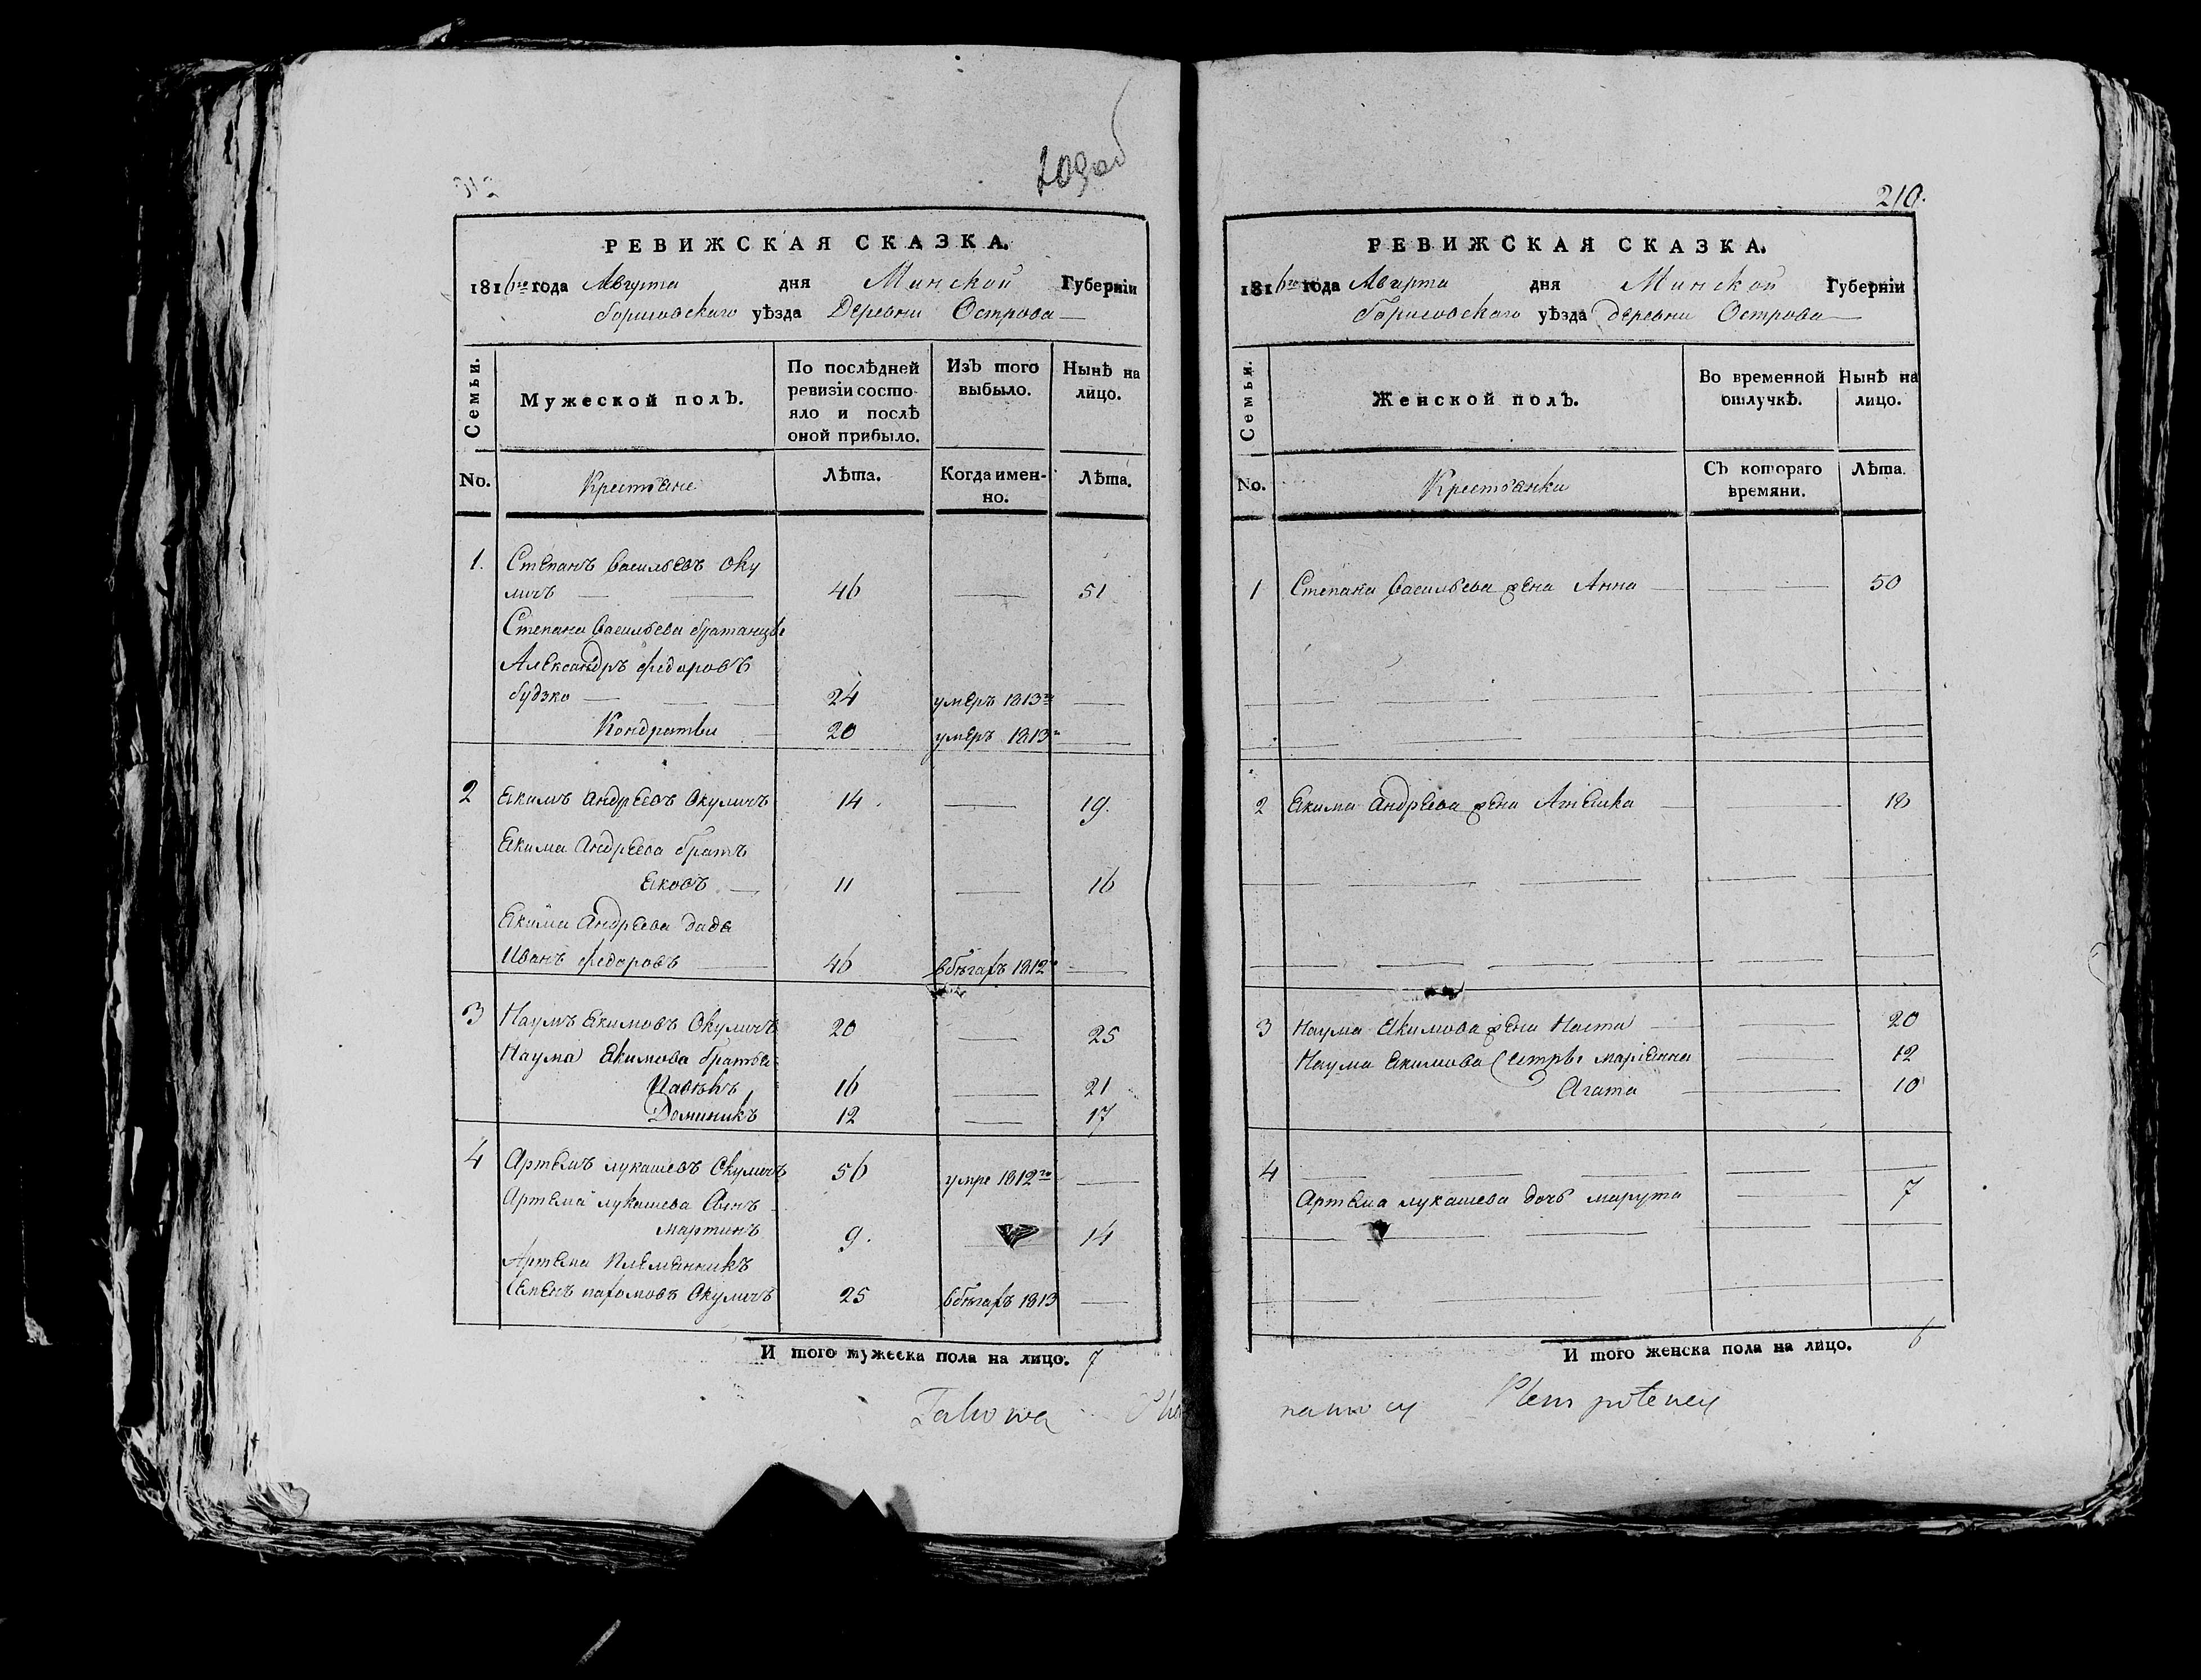 209об
РЕВИЖСКАЯ СКАЗКА.
1816го года Августа дня Минской Губерніи
Борисовскаго уѣзда Деревни Острова
Семьи.
Мужеской полъ.
По послѣдней ревизіи состояло и послѣ оной прибыло.
Изъ того выбыло.
Нынѣ на лицо.
No. Крестьяне Лѣта. Когда именно. Лѣта.
1. Степанъ Васильевъ Оку
личъ — 46 — 51
Степана Васильева братанцы
Александръ Федоровъ
Будзко — 24 умеръ 1813го —
Кондратей 20 умеръ 1813го —
2 Екимъ Андреевъ Окуличъ 14 — 19.
Екима Андреева братъ
Яковъ — 11 — 16
Екима Андреева дядя
Иванъ Федоровъ — 46 1812го —
3 Наумъ Екимовъ Окуличъ 20 — 25
Наума Екимова братья
16 — 21
Доминикъ 12 — 17
4 Артемъ Лукашевъ Окуличъ 56 умре 1812го —
Артема Лукашева Сынъ
Мартинъ 9. — 14
Артема племянникъ
Семенъ Окуличъ 25 1813 —
И того мужеска пола на лицо. 7
210.
РЕВИЖСКАЯ СКАЗКА.
1816го года Августа дня Минской Губерніи
Борисовскаго уѣзда деревни Острова
Семьи.
Женской полъ.
Во временной отлучкѣ.
Нынѣ на лицо.
No. Крестьянки Съ котораго времяни. Лѣта.
1 Степана Васильева жена Анна — 50
2 Екима Андреева жена Агнешка — 18
3 Наума Екимова жена Наста — 20
Наума Екимова Сестры Марьянна — 12
Агата — 10
4 —
Артема Лукашева дочь Марута — 7
И того женска пола на лицо. 6